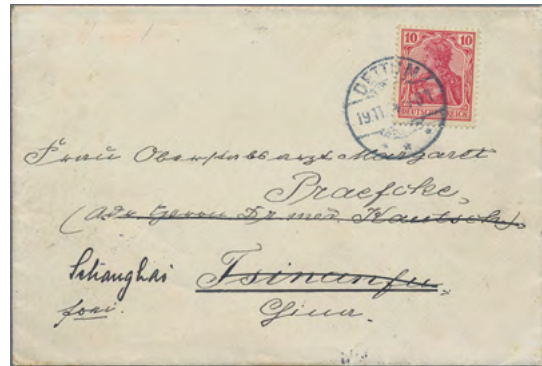 10 10
DEUTSCHES REICH
DETTUM
19.11
Frau Oberstabsarzt Margaret
Praefcke,
(adr. Herrn Dr. med. Kautsch)
Schanghai Tsinanfu,
China.